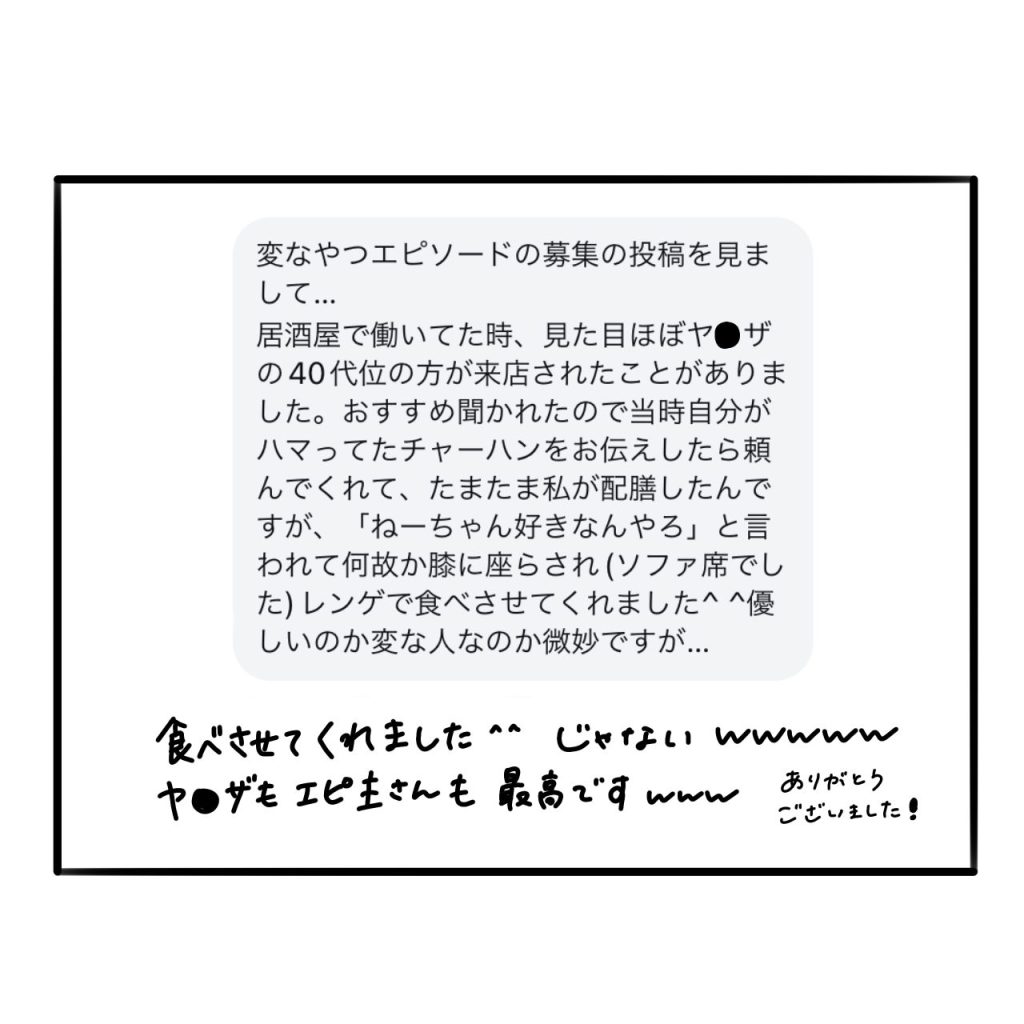 変なやつエピソードの募集の投稿を見ま
して...
居酒屋で働いてた時、見た目ほぼヤ●ザ
の40代位の方が来店されたことがありま
した。おすすめ聞かれたので当時自分が
ハマってたチャーハンをお伝えしたら頼
んでくれて、たまたま私が配膳したんで
すが、「ねーちゃん好きなんやろ」と言
われて何故か膝に座らされ(ソファ席でし
た)レンゲで食べさせてくれました^ ^優
しいのか変な人なのか微妙ですが...
食べさせてくれました^^ じゃない wwwwww
ヤ●ザも エピ主さんも 最高です www
ありがとう
ございました!